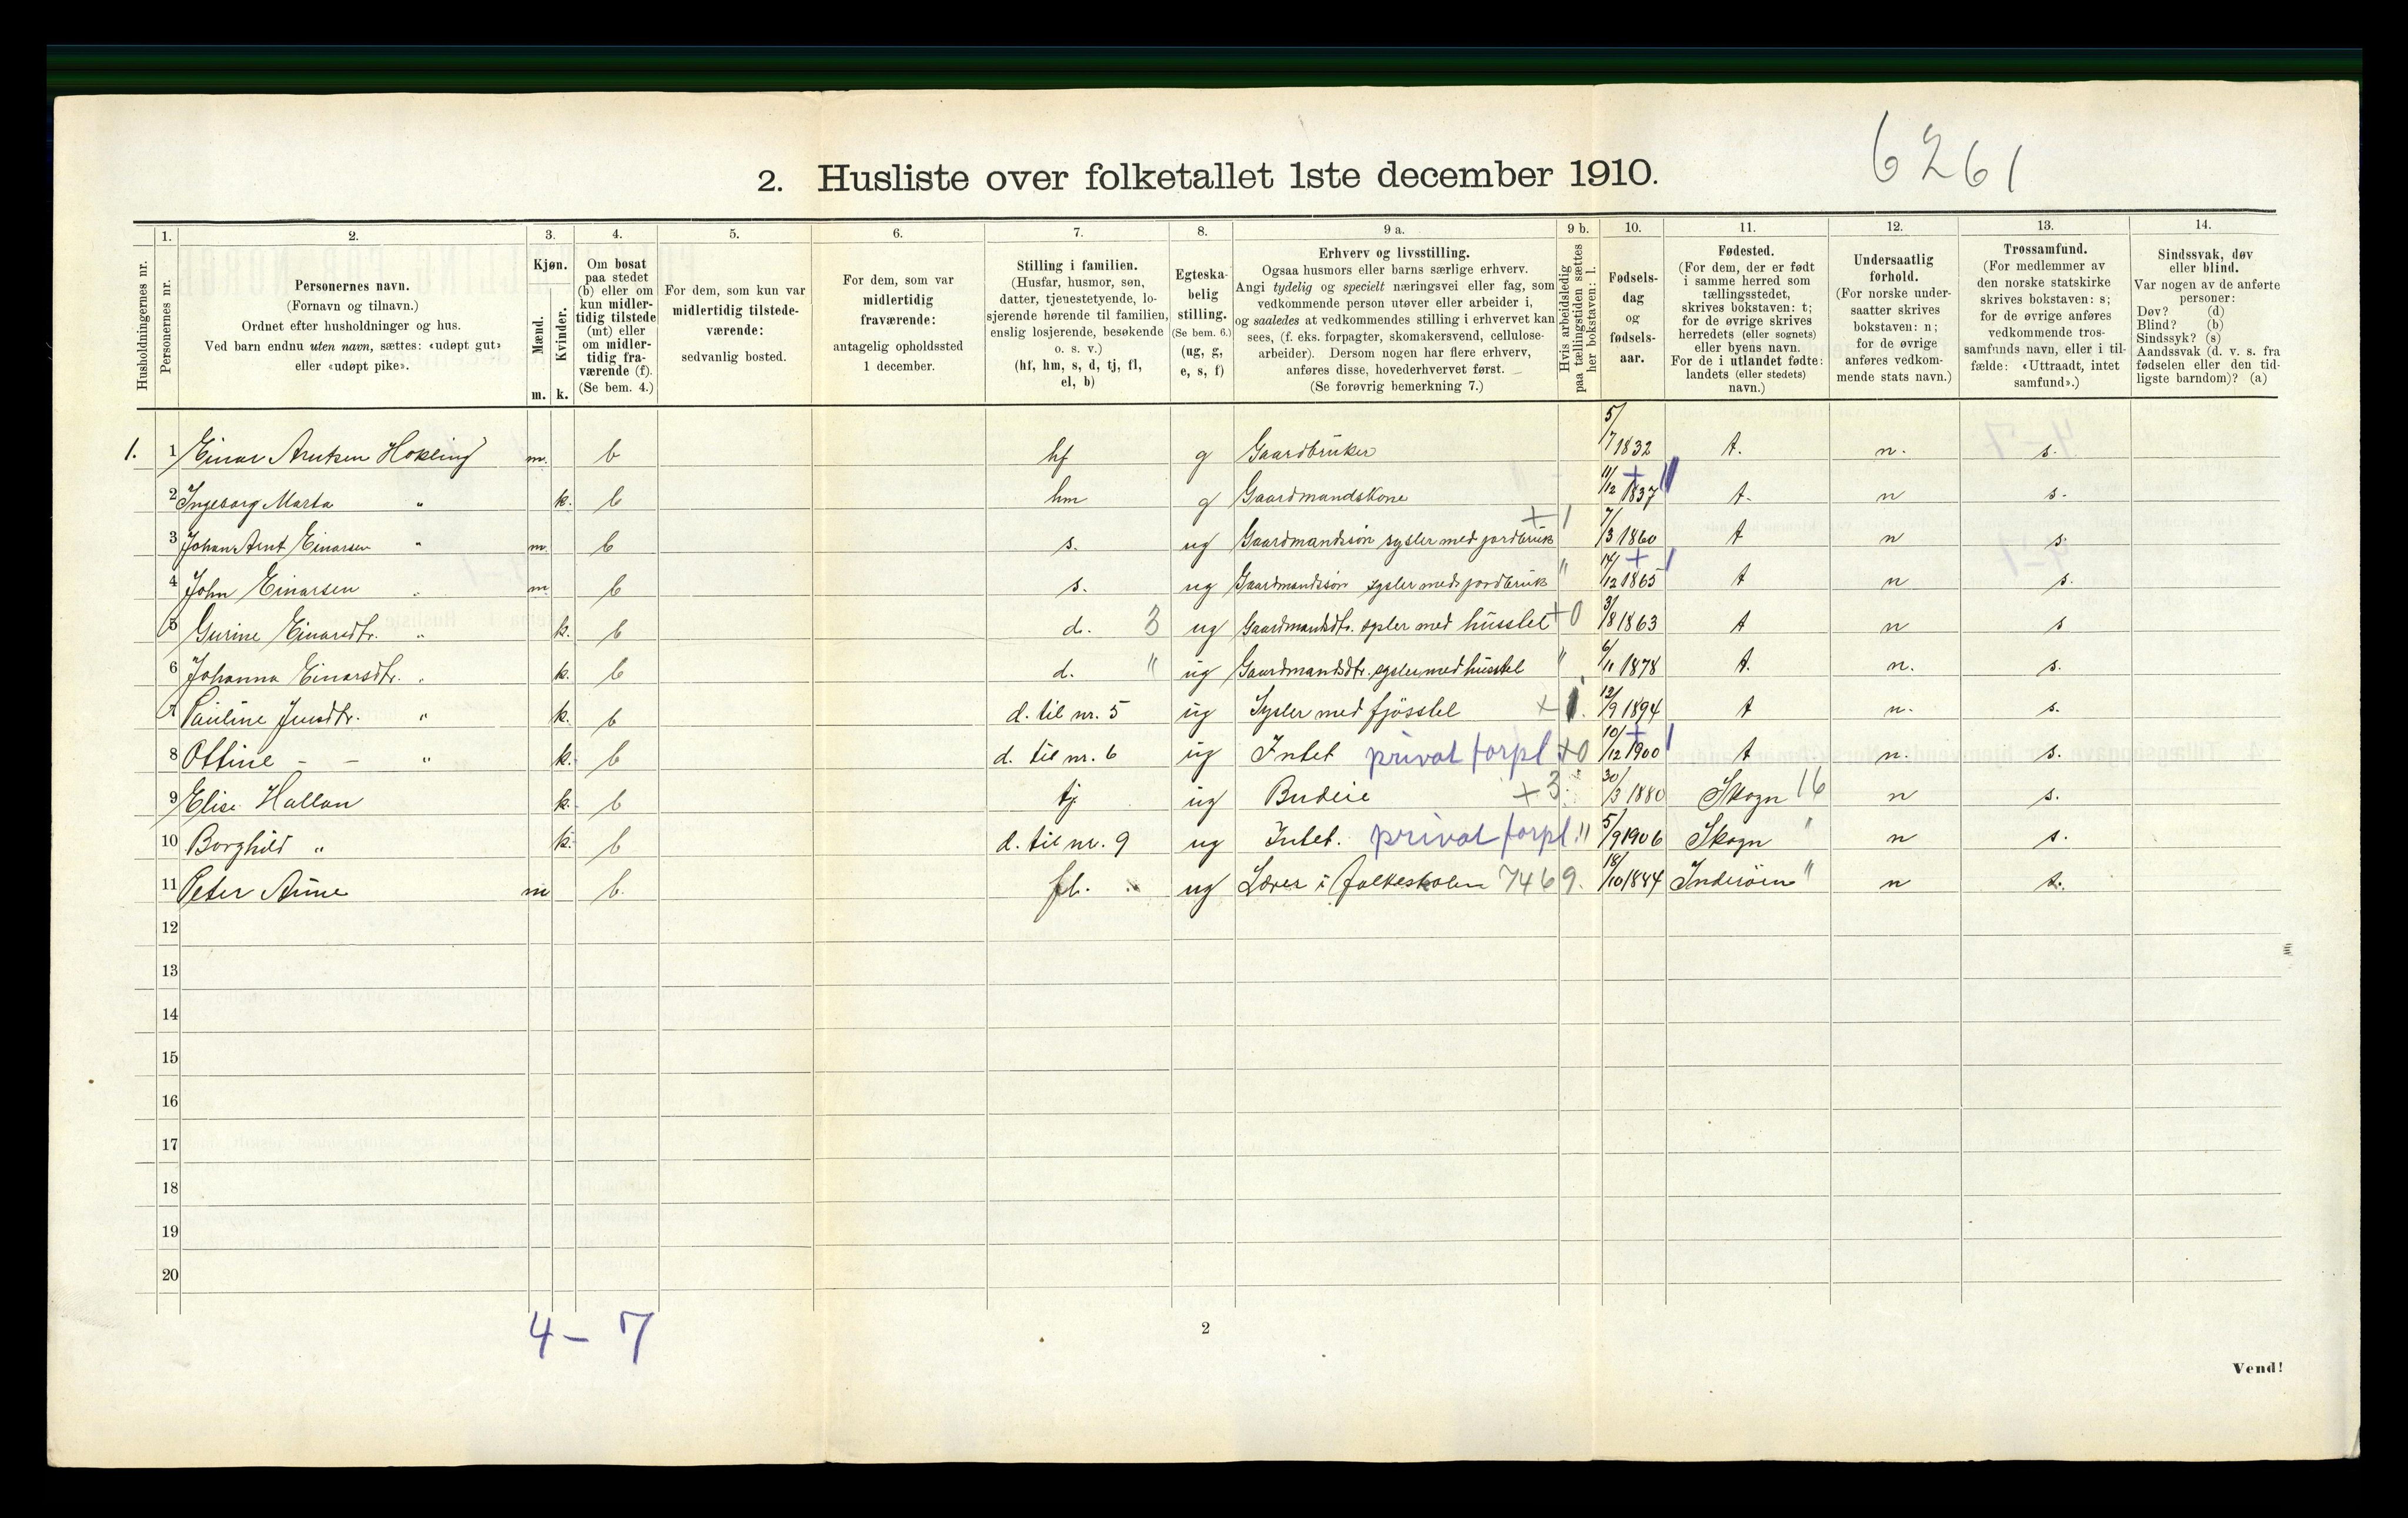 6261
2. Husliste over folketallet 1ste december 1910.
Husholdningernes nr.
1.
Personernes nr.
2.
Personernes navn.
(Fornavn og tilnavn.)
Ordnet efter husholdninger og hus.
Ved barn endnu uten navn, sættes: «udøpt gut»
eller «udøpt pike».
3.
Kjøn.
Mænd.
Kvinder.
m. k.
4.
Om bosat
paa stedet
(b) eller om
kun midler-
tidig tilstede
(mt) eller
om midler-
tidig fra-
værende (f).
(Se bem. 4.)
5.
For dem, som kun var
midlertidig tilstede-
værende:
sedvanlig bosted.
6.
For dem, som var
midlertidig
fraværende:
antagelig opholdssted
1 december.
7.
Stilling i familien.
(Husfar, husmor, søn,
datter, tjenestetyende, lo-
sjerende hørende til familien,
enslig losjerende, besøkende
o. s. v.)
(hf, hm, s, d, tj, fl,
el, b)
8.
Egteska-
belig
stilling.
(Se bem. 6.)
(ug, g,
e, s, f)
9 a.
Erhverv og livsstilling.
Ogsaa husmors eller barns særlige erhverv.
Angi tydelig og specielt næringsvei eller fag, som
vedkommende person utøver eller arbeider i,
og saaledes at vedkommendes stilling i erhvervet kan
sees, (f. eks. forpagter, skomakersvend, cellulose-
arbeider). Dersom nogen har flere erhverv,
anføres disse, hovederhvervet først.
(Se forøvrig bemerkning 7.)
9 b.
Hvis arbeidsledig
paa tællingstiden sættes
her bokstaven: l.
10.
Fødsels-
dag
og
fødsels-
aar.
11.
Fødested.
(For dem, der er født
i samme herred som
tællingsstedet,
skrives bokstaven: t;
for de øvrige skrives
herredets (eller sognets)
eller byens navn.
For de i utlandet fødte:
landets (eller stedets)
navn.)
12.
Undersaatlig
forhold.
(For norske under-
saatter skrives
bokstaven: n;
for de øvrige
anføres vedkom-
mende stats navn.)
13.
Trossamfund.
(For medlemmer av
den norske statskirke
skrives bokstaven: s;
for de øvrige anføres
vedkommende tros-
samfunds navn, eller i til-
fælde: «Uttraadt, intet
samfund».)
14.
Sindssvak, døv
eller blind.
Var nogen av de anførte
personer:
Døv? (d)
Blind? (b)
Sindssyk? (s)
Aandssvak (d. v. s. fra
fødselen eller den tid-
ligste barndom)? (a)
1. 1 Einar Arntsen Hokling m. b hf g Gaardbruker 5/7 1832 t. n. s.
2 Ingeborg Marta " k. b hm g Gaardmandskone 11/12 1837 t. n s.
3 Johan Arnt Einarsen " m b s. ug Gaardmandssøn sysler med jordbruk + 1 7/3 1860 t n s.
4 John Einarsen " m b s. ug Gaardmandssøn sysler med jordbruk " 14/12 1865 t n s.
5 Gurine Einarsdtr. " k. b d. 3 ug Gaardmandsdtr. sysler med husstel + 0 3/8 1863 t n s
6 Johanna Einarsdtr. " k. b d. " ug Gaardmandsdtr. sysler med husstel " 6/11 1878 t. n. s.
7 Pauline Jensdtr. " k. b d. til nr. 5 ug Sysler med fjösstel + 1. 12/9 1894 t n. s.
8 Ottine - - " k. b d. til nr. 6 ug Intet privat forpl +0 10/12 1900 t n. s.
9 Elise Hallan k. b tj ug Budeie +3. 30/3 1880 Skogn 16 n s.
10 Borghild " k. b d. til nr. 9 ug Intet. privat forpl. " 5/9 1906 Skogn " n s.
11 Peter Aune m b. fl. ug Lærer i folkeskolen 7469. 18/10 1884 Inderøen " n s.
12
13
14
15
16
17
18
19
20
4 - 7
2
Vend!